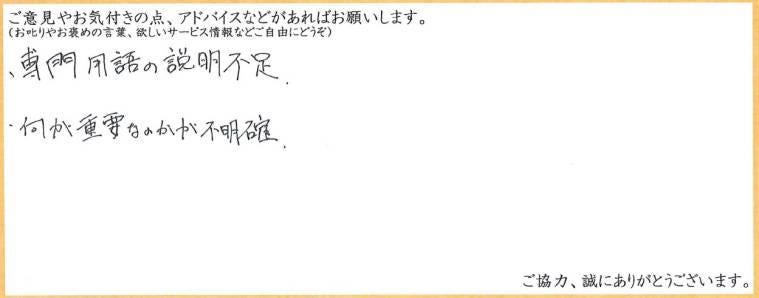 ご意見やお気付きの点、アドバイスなどがあればお願いします。
(お叱りやお褒めの言葉、欲しいサービス情報などご自由にどうぞ)
・専門用語の説明不足.
・何が重要なのかが不明確.
ご協力、誠にありがとうございます。